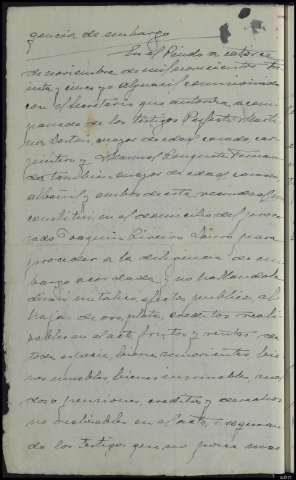 gencia de embargo
En el Pindo a catorce
de noviembre de mil novecientos tre
inta y uno yo Alguacil comisionado
con el Secretario que autoriza acom
panados de los testigos Perfecto Mart
mayor de edad casado, car
pintero y Manuel Fernan
dez también mayor de edad casado
albañil y ambos de esta vecindad me
constituí en el domicilio del proce
sado Joaquin para
proceder a la diligencia de em
bargo acordada y no hallandole
dinero metálico, efectos publicos, al
hajas de oro, plata, creditos reali
zables en el acto, frutos y rentas de
toda especie, bienes semovientes, bie
nes muebles, bienes inmuebles, suel
dos o pensiones, creditos y derechos
no realizables en el acto, segun
de los testigos que no posee mas